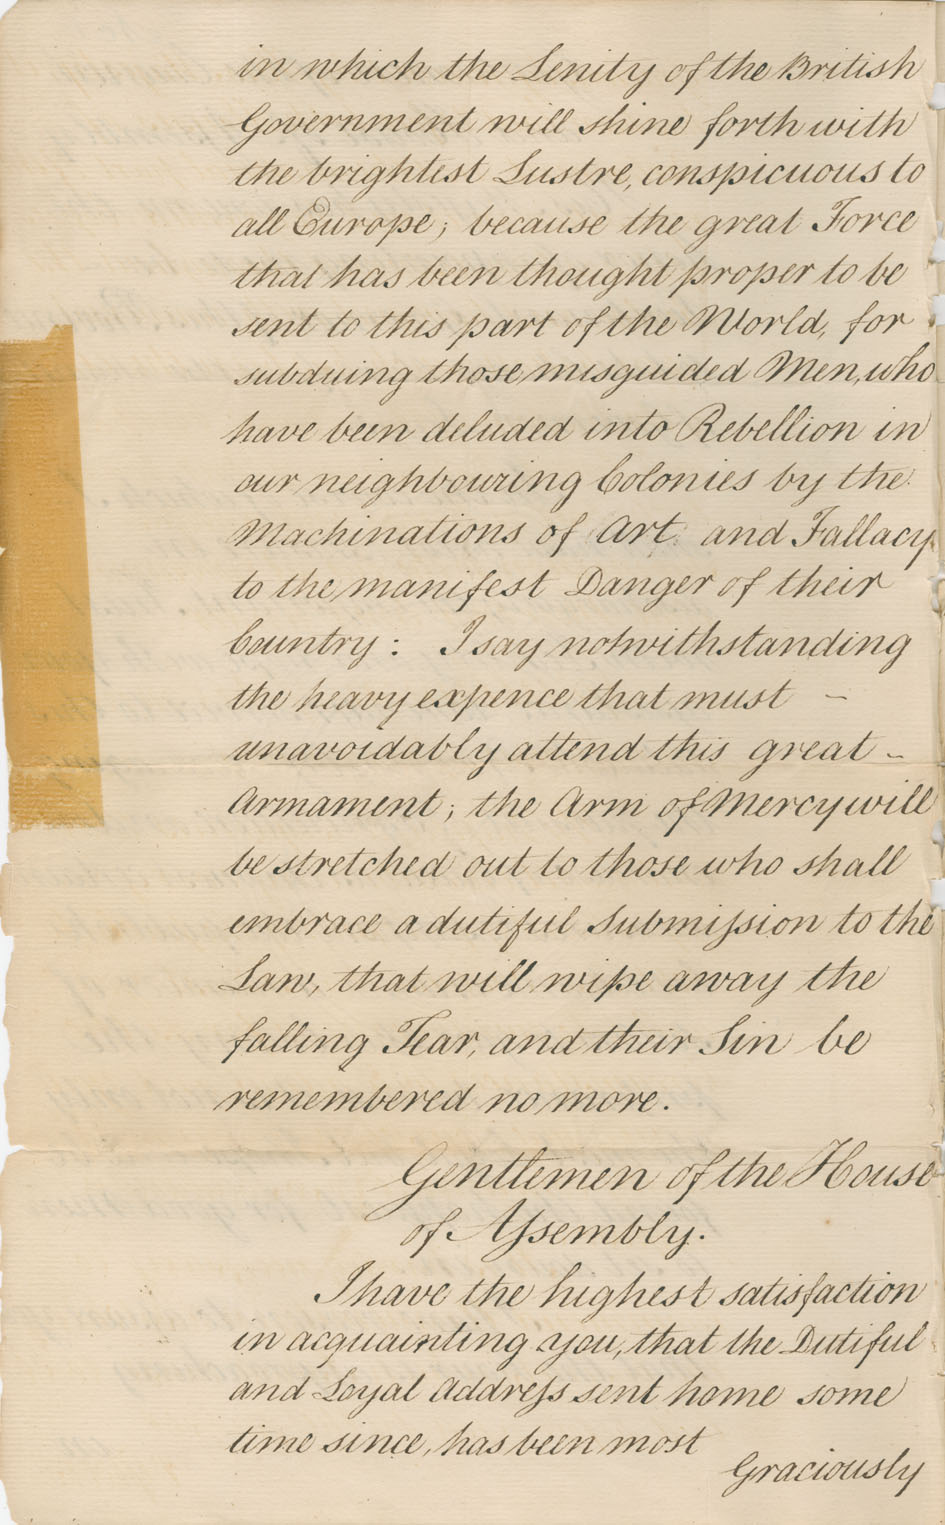 in which the Lenity of the British
Government will shine forth with
the brightest Lustre, conspicuous to
all Europe; because the great Force
that has been thought proper to be
sent to this part of the World, for
subduing those misguided Men, who
have been deluded into Rebellion in
our neighbouring Colonies by the
Machinations of Art and Fallacy
to the manifest Danger of their
Country: I say notwithstanding
the heavy expence that must –
unavoidably attend this great –
Armament; the Arm of Mercy will
be stretched out to those who shall
embrace a dutiful Submiſsion to the
Law, that will wipe away the
falling Tear, and their Sin be
remembered no more.
Gentlemen of the House
of Aſsembly.
I have the highest satisfaction
in acquainting you, that the Dutiful
and Loyal Addreſs sent home some
time since, has been most
Graciously